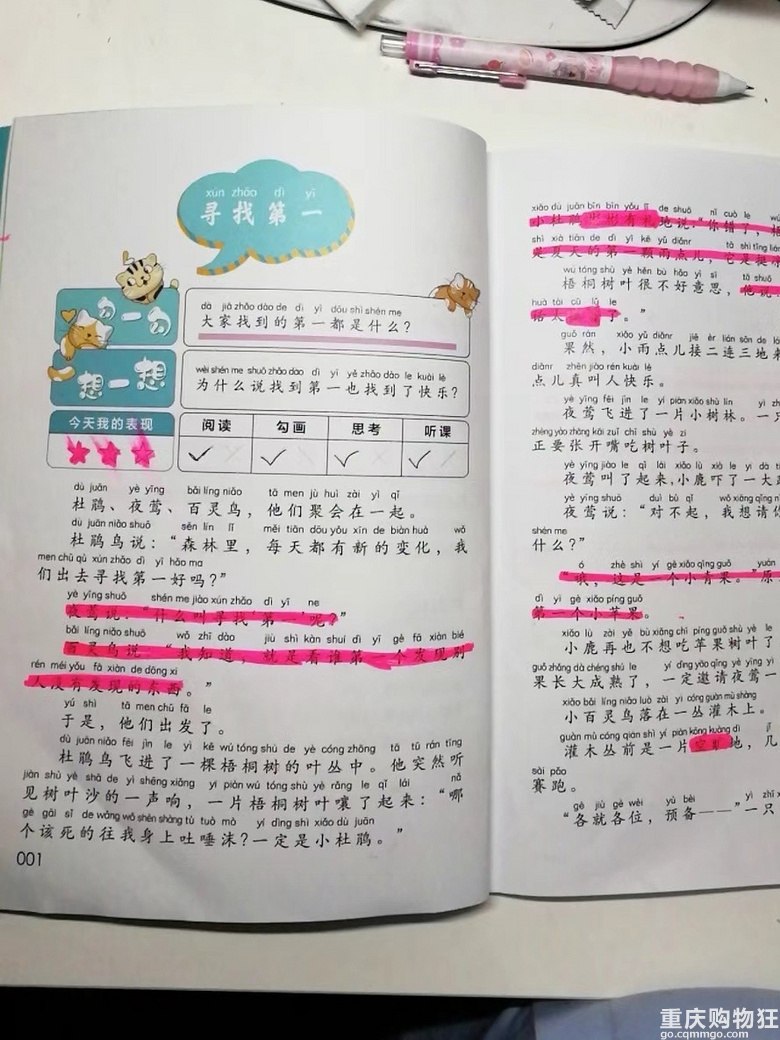 xún zhǎo dì yī
寻找第一
勾一勾
dà jiā zhǎo dào de dì yī dōu shì shén me
大家找到的第一都是什么？
想一想
wèi shén me shuō zhǎo dào dì yī yě zhǎo dào le kuài lè
为什么说找到第一也找到了快乐？
今天我的表现
阅读 勾画 思考 听课
dù juān yè yīng bǎi líng niǎo tā men jù huì zài yì qǐ
杜鹃、夜莺、百灵鸟，他们聚会在一起。
dù juān niǎo shuō sēn lín lǐ měi tiān dōu yǒu xīn de biàn huà wǒ
杜鹃鸟说：“森林里，每天都有新的变化，我
men chū qù xún zhǎo dì yī hǎo ma
们出去寻找第一好吗？”
yè yīng shuō shén me jiào xún zhǎo dì yī ne
夜莺说：“什么叫寻找‘第一’呢？”
bǎi líng niǎo shuō wǒ zhī dào jiù shì kàn shuí dì yī gè fā xiàn bié
百灵鸟说：“我知道，就是看谁第一个发现别
rén méi yǒu fā xiàn de dōng xi
人没有发现的东西。”
yú shì tā men chū fā le
于是，他们出发了。
dù juān niǎo fēi jìn le yì kē wú tóng shù de yè cóng zhōng tā tū rán tīng
杜鹃鸟飞进了一棵梧桐树的叶丛中。他突然听
jiàn shù yè shā de yì shēng xiǎng yí piàn wú tóng shù yè rǎng le qǐ lái nǎ
见树叶沙的一声响，一片梧桐树叶嚷了起来：“哪
gè gāi sǐ de wǎng wǒ shēn shàng tǔ tuò mò yí dìng shì xiǎo dù juān
个该死的往我身上吐唾沫？一定是小杜鹃。”
001
xiǎo dù juān bīn bīn yǒu lǐ de shuō nǐ cuò le
小杜鹃彬彬有礼地说：“你错了，
shì xià tiān de dì yī kē yǔ diǎnr tā shì tīng
是夏天的第一颗雨点儿，它是挺
wú tóng shù yè hěn bù hǎo yì si tā shuō
梧桐树叶很不好意思，他说
huà tài cū lǔ le
话太 了。”
guǒ rán xiǎo yǔ diǎnr jiē èr lián sān de
果然，小雨点儿接二连三地
diǎnr zhēn jiào rén kuài lè
点儿真叫人快乐。
yè yīng fēi jìn le yí piàn xiǎo shù lín yì zhī
夜莺飞进了一片小树林。一只
zhèng yào zhāng kāi zuǐ chī shù yè zi
正要张开嘴吃树叶子。
yè yīng jiào le qǐ lái xiǎo lù xià le yí dà tiào
夜莺叫了起来，小鹿吓了一大跳
yè yīng shuō duì bù qǐ wǒ xiǎng qǐng nǐ
夜莺说：“对不起，我想请你
shén me
什么？”
ó zhè shì yí gè xiǎo qīng guǒ yuán
“哦，这是一个小青果。”原
dì yī gè xiǎo píng guǒ
第一个小苹果。
xiǎo lù zài yě bù xiǎng chī píng guǒ shù yè le
小鹿再也不想吃苹果树叶了
guǒ zhǎng dà chéng shú le yí dìng yāo qǐng yè yīng yī
果长大成熟了，一定邀请夜莺一
xiǎo bǎi líng niǎo luò zài yì cóng guàn mù shàng
小百灵鸟落在一丛灌木上。
guàn mù cóng qián shì yí piàn kòng kuàng dì jǐ
灌木丛前是一片空旷地，几
sài pǎo
赛跑。
gè jiù gè wèi yù bèi yì zhī
“各就各位，预备——”一只
重庆购物狂
go.cqmmgo.com